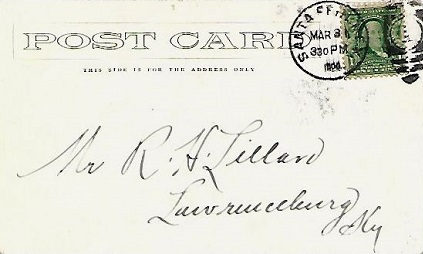 POST CARD
THIS SIDE IS FOR THE ADDRESS ONLY
SANTA FE
MAR 3
330 PM
Mr R. H. Lillard
Lawrenceburg
Ky